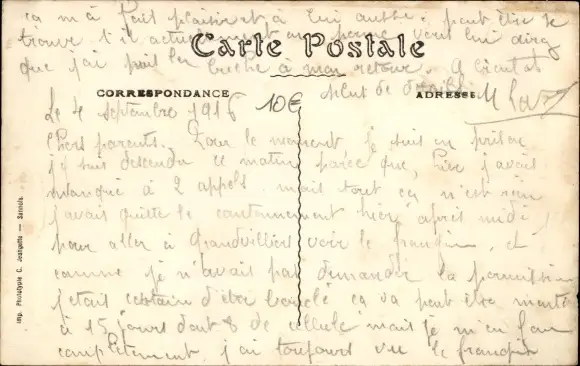 ça m'a fait plaisir et à lui aussi. peut être se
trouve t'il actuellement au vous lui direz
que j'ai pris la à mon retour. A bientôt
Carte Postale
plus de détails.
CORRESPONDANCE
10€
ADRESSE
Le 4 septembre 1916
Chers parents. Pour le moment, je suis en prison
j'y suis descendu ce matin parce que, hier j'avais
manqué à 2 appels, mais tout ça n'est rien
j'avais quitté le cantonnement hier après midi,
pour aller à Grandvilliers voir le frangin, et
comme je n'avais pas demandé la permission
j'étais certain d'être bouclé ça va peut être monter
à 15 jours dont 8 de cellule mais je m'en fou
complètement, j'ai toujours vu le frangin
Imp. Phototypie C. Jeangette — Servais.